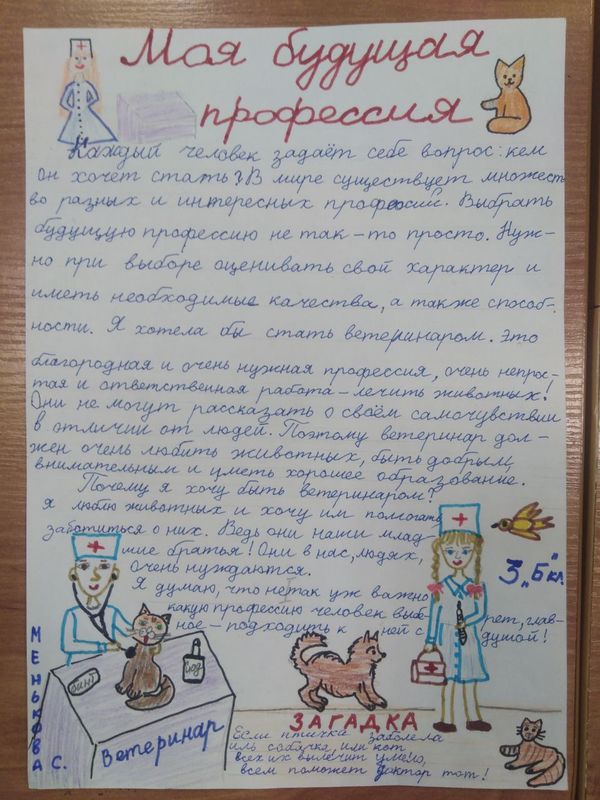 Моя будущая
профессия
Каждый человек задаёт себе вопрос: кем
он хочет стать? В мире существует множест
во разных и интересных профессий. Выбрать
будущую профессию не так-то просто. Нуж-
но при выборе оценивать свой характер и
иметь необходимые качества, а также способ-
ности. Я хотела бы стать ветеринаром. Это
благородная и очень нужная профессия, очень непрос-
тая и ответственная работа - лечить животных!
Они не могут рассказать о своём самочувствии
в отличии от людей. Поэтому ветеринар дол-
жен очень любить животных, быть добрым,
внимательным и уметь хорошее образование.
Почему я хочу быть ветеринаром?
Я люблю животных и хочу им помогать
заботиться о них. Ведь они наши млад-
шие братья! Они в нас, людях,
очень нуждаются.
Я думаю, что не так уж важно
какую профессию человек выб- рет, глав-
ное - подходить к ней с душой!
3 „Б" кл.
МЕНЬКОВА С.
бинт
йод
Ветеринар
ЗАГАДКА
Если птичка заболела
иль собачка, или кот
всех их вылечит умело,
всем поможет доктор тот!